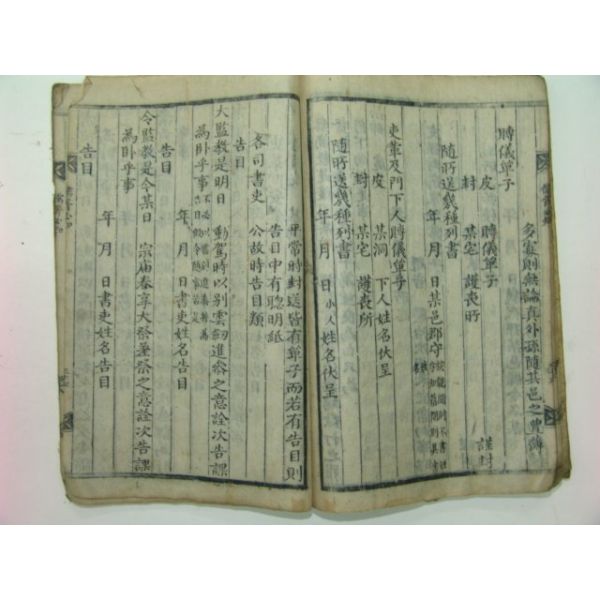 多寡則無論眞外孫隨其邑之豊薄
賻儀單子 謹封
皮 賻儀單子
封 某宅 護喪所
隨所送幾種列書
年 月 日某邑郡守
吏輩及門下人賻儀單子
皮 某洞 下人姓名伏呈
封 某宅 護喪所
隨所送幾種列書
年 月 日小人姓名伏呈
平常時封送皆有單子而若有告目則
告目中有聰明紙
各司書吏 公故時告目類
告目
大監敎是明日 動駕時以別雲劒進參之意詮次告課
爲卧乎事
年 月 日書吏姓名告目
告目
令監敎是今某日 宗庙春享大祭兼祭之意詮次告課
爲卧乎事
年 月 日書吏姓名告目
告目